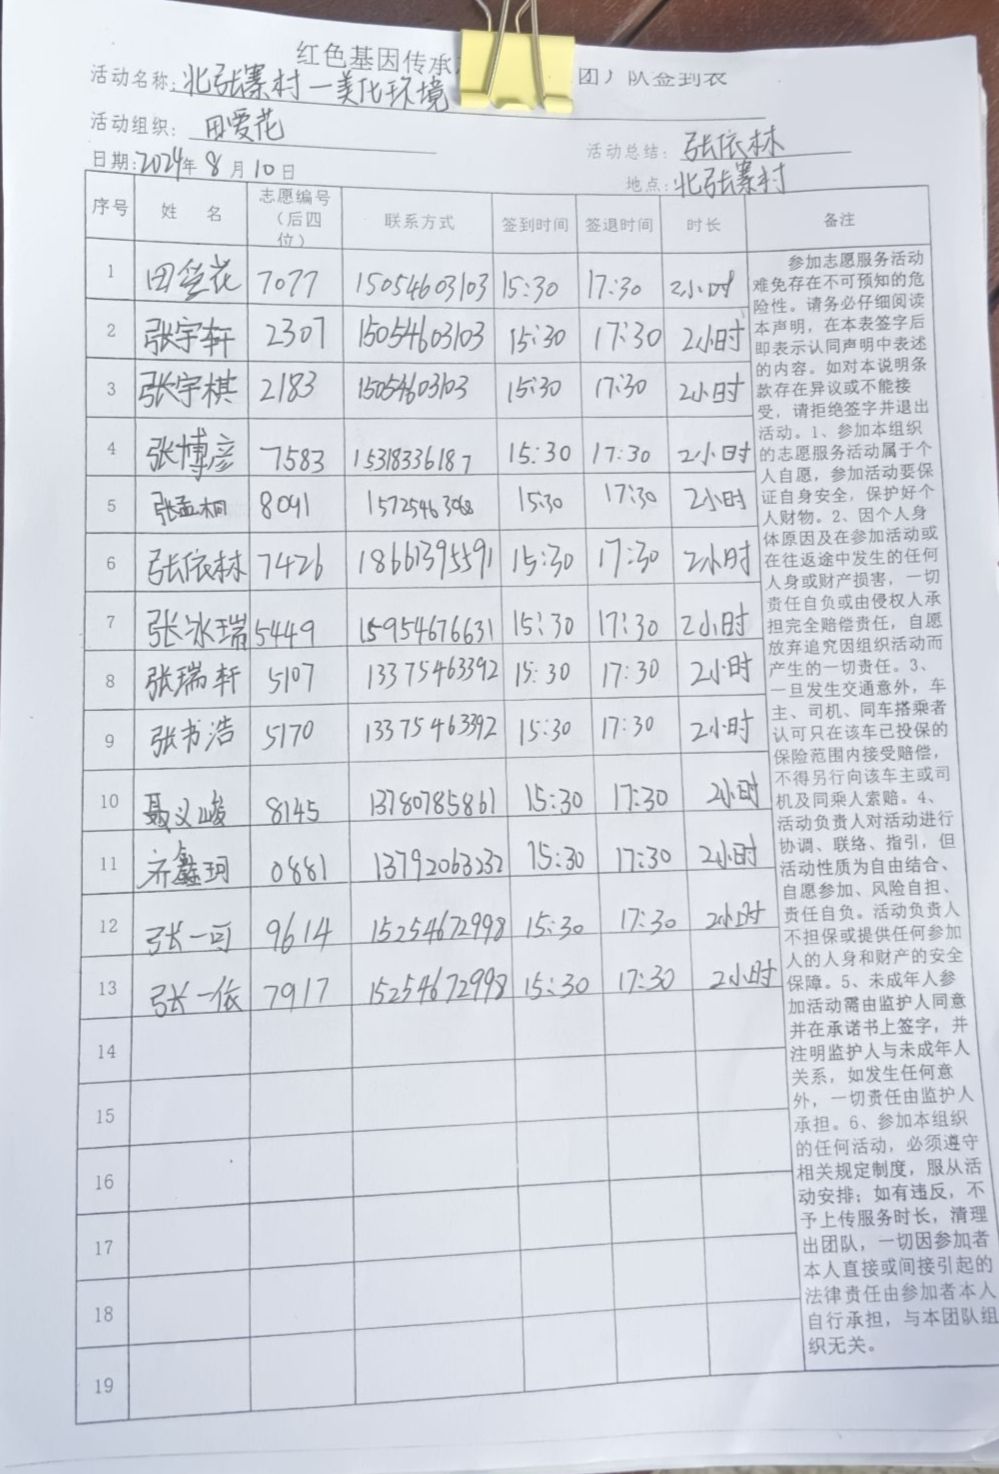 红色基因传承 团）队签到表
活动名称：北张寨村一美化环境
活动组织：田爱花
活动总结：张依林
日期：2024年8月10日
地点：北张寨村
序号 姓 名 志愿编号（后四位） 联系方式 签到时间 签退时间 时长 备注
1 田爱花 7077 15054603103 15:30 17:30 2小时
2 张宇轩 2307 15054603103 15:30 17:30 2小时
3 张宇棋 2183 15054603103 15:30 17:30 2小时
4 张博彦 7583 15318336187 15:30 17:30 2小时
5 张孟桐 8091 15725463968 15:30 17:30 2小时
6 张依林 7426 18661395591 15:30 17:30 2小时
7 张冰瑞 5449 15954676631 15:30 17:30 2小时
8 张瑞轩 5107 13375463392 15:30 17:30 2小时
9 张书浩 5170 13375463392 15:30 17:30 2小时
10 聂义峻 8145 13780785861 15:30 17:30 2小时
11 齐鑫珂 0881 13792063232 15:30 17:30 2小时
12 张一可 9614 15254672998 15:30 17:30 2小时
13 张一依 7917 15254672998 15:30 17:30 2小时
14
15
16
17
18
19
参加志愿服务活动
难免存在不可预知的危
险性。请务必仔细阅读
本声明，在本表签字后
即表示认同声明中表述
的内容。如对本说明条
款存在异议或不能接
受，请拒绝签字并退出
活动。1、参加本组织
的志愿服务活动属于个
人自愿，参加活动要保
证自身安全，保护好个
人财物。2、因个人身
体原因及在参加活动或
在往返途中发生的任何
人身或财产损害，一切
责任自负或由侵权人承
担完全赔偿责任，自愿
放弃追究因组织活动而
产生的一切责任。3、
一旦发生交通意外，车
主、司机、同车搭乘者
认可只在该车已投保的
保险范围内接受赔偿，
不得另行向该车主或司
机及同乘人索赔。4、
活动负责人对活动进行
协调、联络、指引，但
活动性质为自由结合、
自愿参加、风险自担、
责任自负。活动负责人
不担保或提供任何参加
人的人身和财产的安全
保障。5、未成年人参
加活动需由监护人同意
并在承诺书上签字，并
注明监护人与未成年人
关系，如发生任何意
外，一切责任由监护人
承担。6、参加本组织
的任何活动，必须遵守
相关规定制度，服从活
动安排；如有违反，不
予上传服务时长，清理
出团队，一切因参加者
本人直接或间接引起的
法律责任由参加者本人
自行承担，与本团队组
织无关。